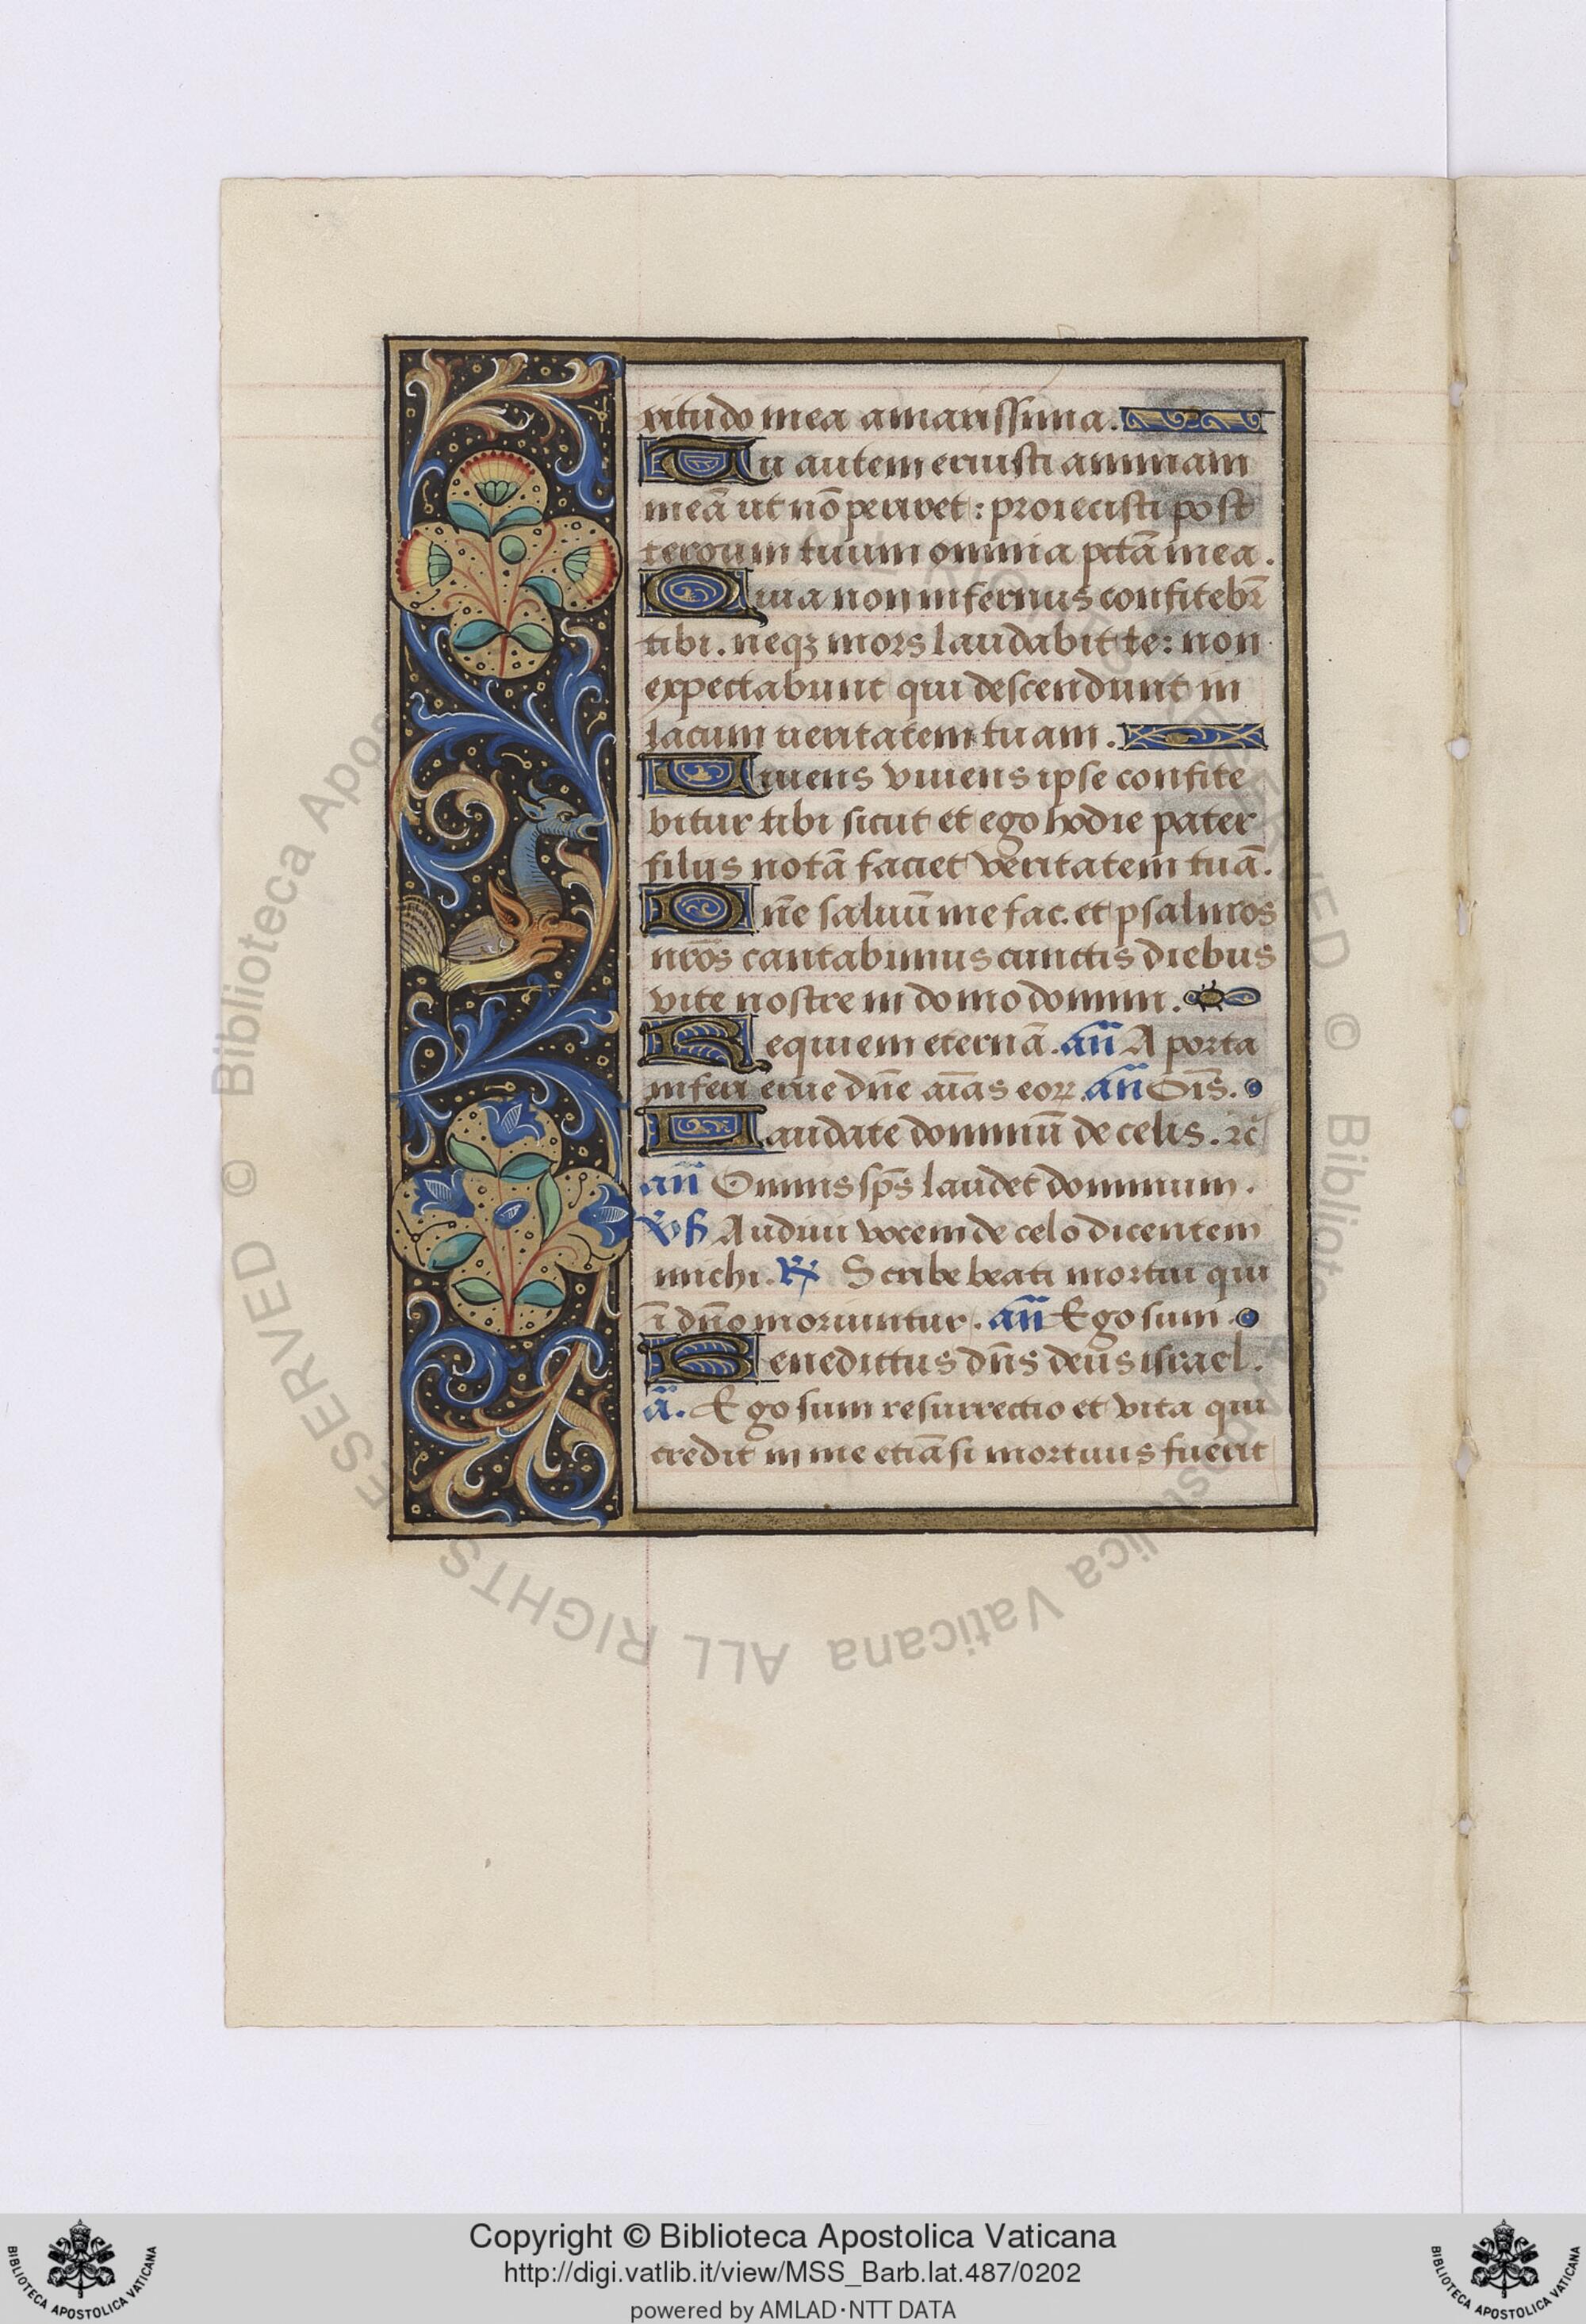 ritudo mea amarissima.
Tu autem eruisti animam
meā ut nō periret: proiecisti post
tergum tuum omnia pctā mea.
Quia non infernus confitebr̄
tibi. neqꝫ mors laudabit te: non
expectabunt qui descendunt in
lacum ueritatem tuam.
Viuens viuens ipse confite
bitur tibi sicut et ego hodie pater
filiis notā faciet veritatem tuā.
Dn̄e saluū me fac. et psalmos
nr̄os cantabimus cunctis diebus
vite nostre in domo domini.
Requiem eternā. an̄ A porta
inferi erue dn̄e aīas eoꝝ. an̄ Oīs.
Laudate dominū de celis. ⁊c̄
an̄ Omnis sp̄s laudet dominum.
Vß Audiui vocem de celo dicentem
michi. ℟ Scribe beati mortui qui
ī dn̄o moriuntur. an̄ Ego sum
Benedictus dn̄s deus israel.
ā. Ego sum resurrectio et vita qui
credit in me etiāsi mortuus fuerit
© Biblioteca Apostolica Vaticana ALL RIGHTS RESERVED
Copyright © Biblioteca Apostolica Vaticana
http://digi.vatlib.it/view/MSS_Barb.lat.487/0202
powered by AMLAD·NTT DATA
BIBLIOTECA APOSTOLICA VATICANA
BIBLIOTECA APOSTOLICA VATICANA